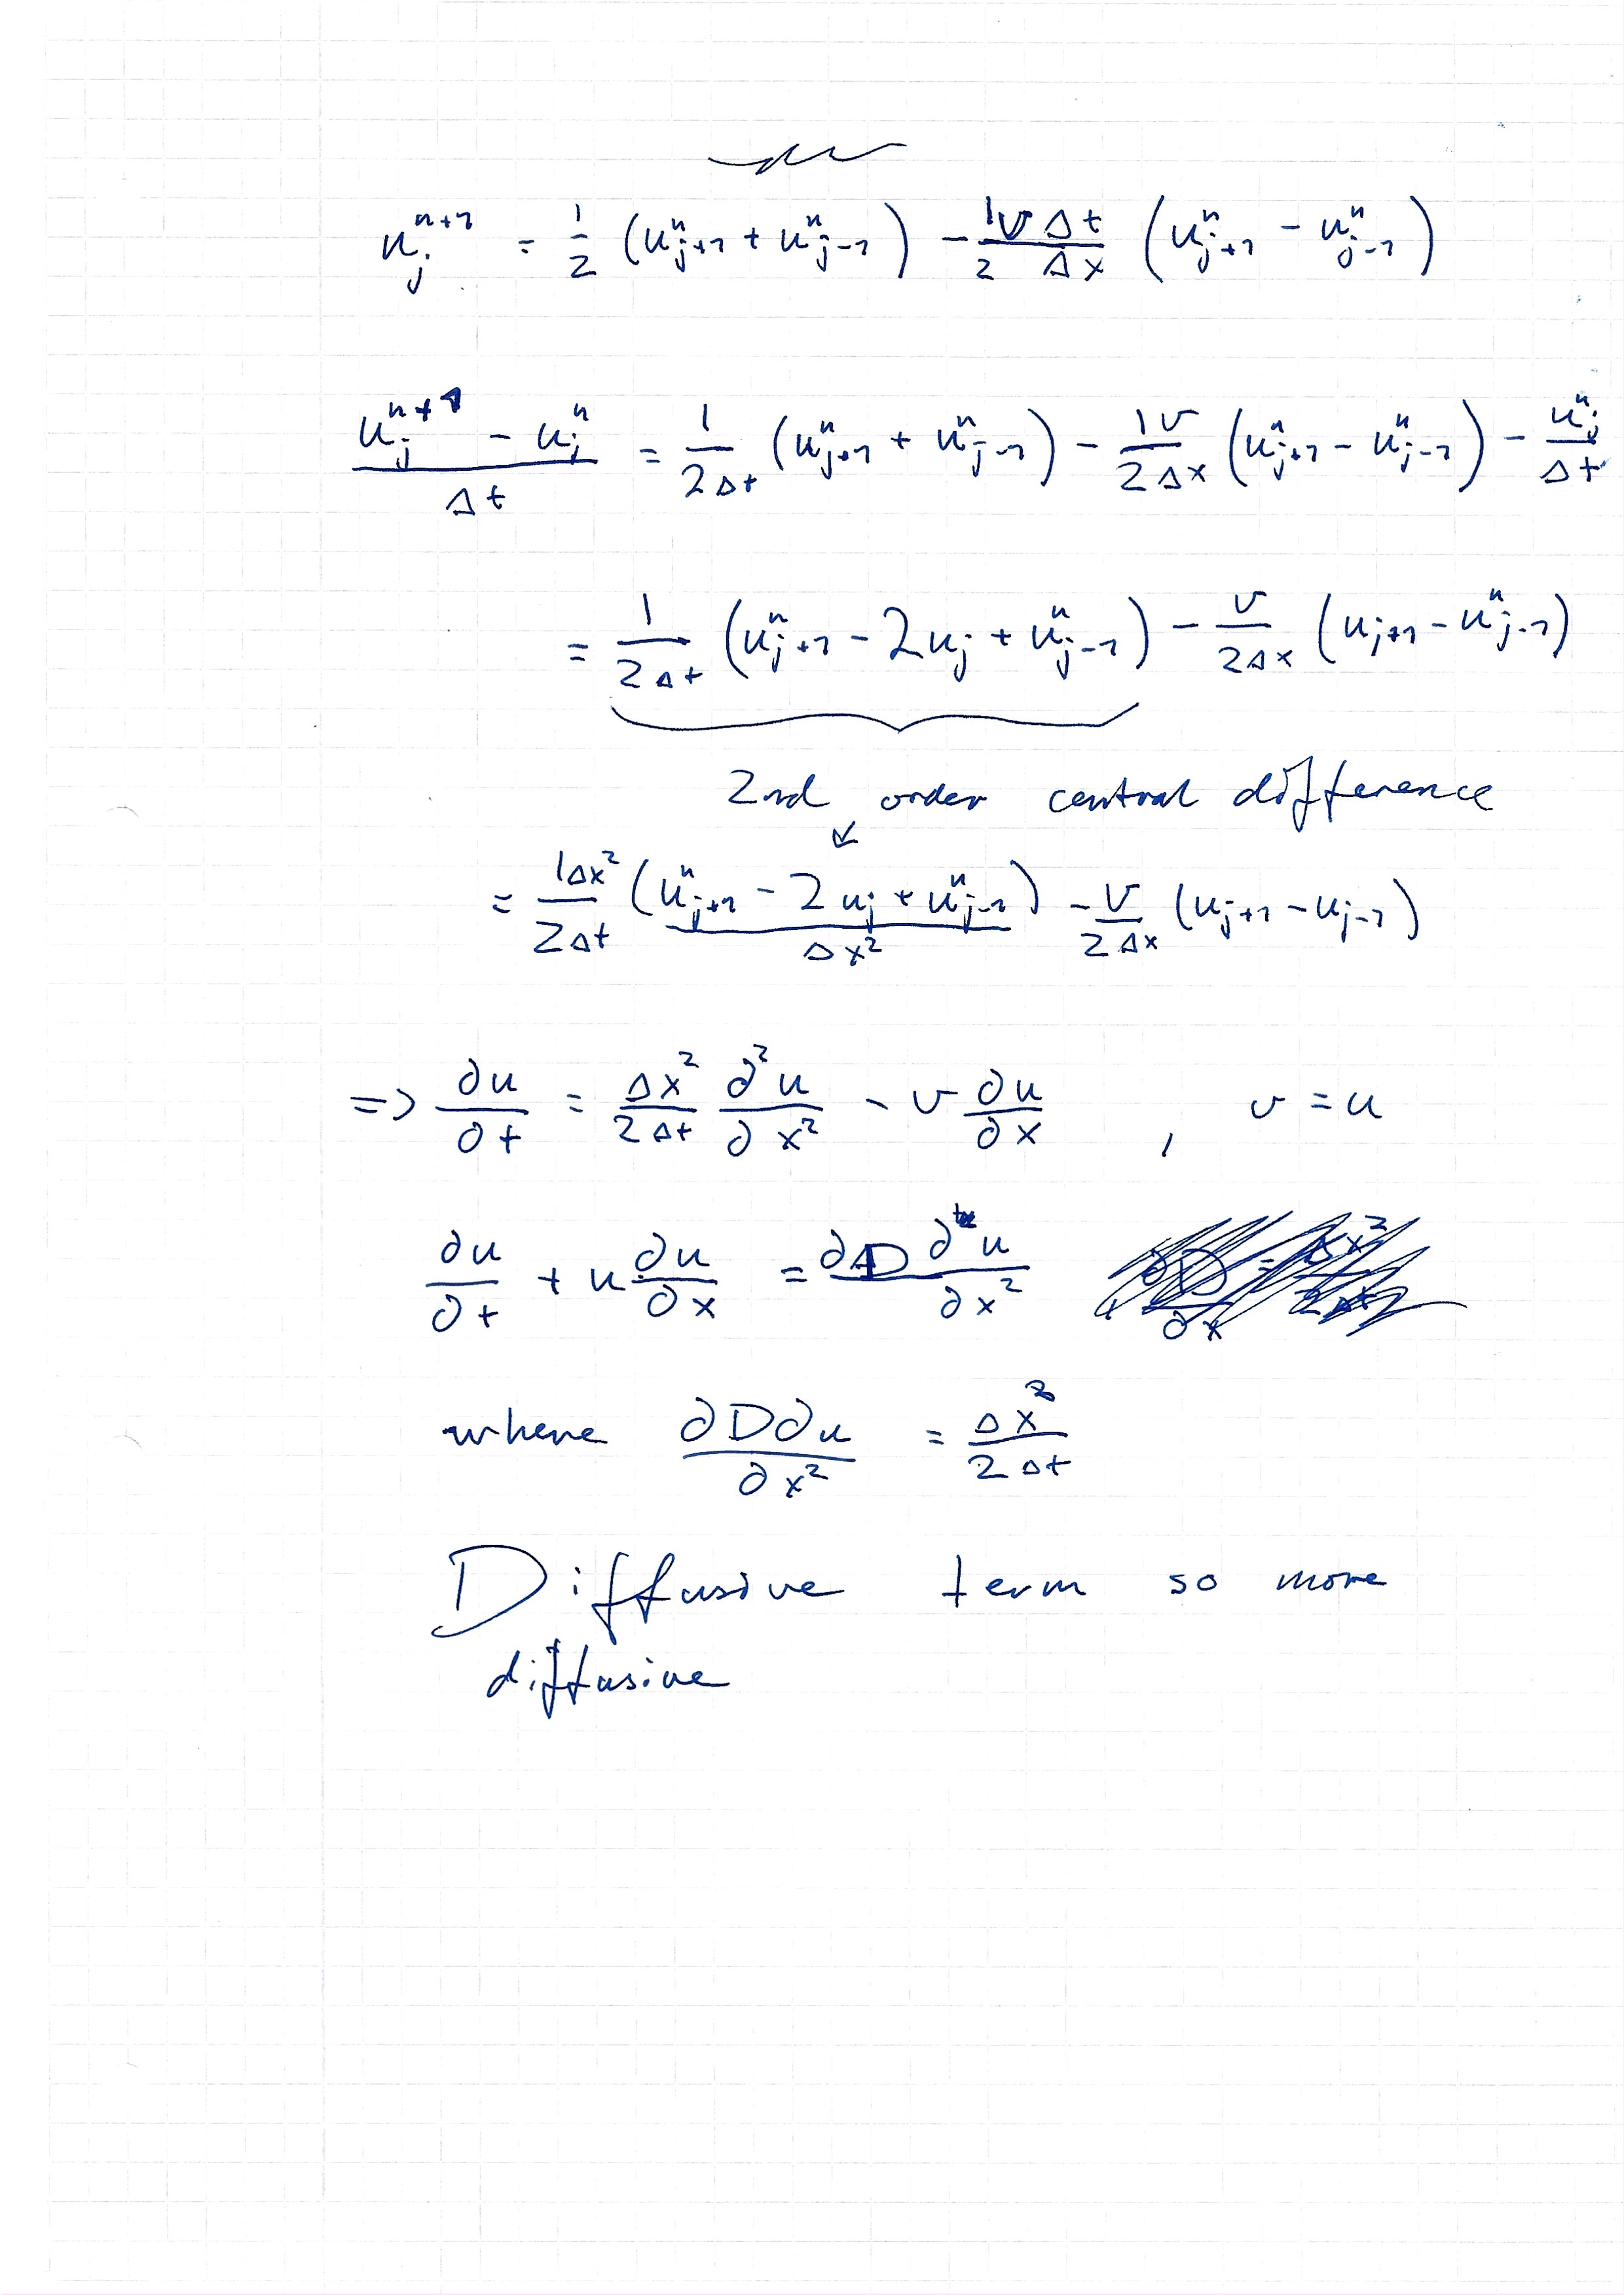 u_j^{n+1} = \frac{1}{2} (u_{j+1}^n + u_{j-1}^n) - \frac{1 v Δt}{2 Δx} (u_{j+1}^n - u_{j-1}^n)
\frac{u_j^{n+1} - u_j^n}{Δt} = \frac{1}{2Δt} (u_{j+1}^n + u_{j-1}^n) - \frac{1v}{2Δx} (u_{j+1}^n - u_{j-1}^n) - \frac{u_j^n}{Δt}
= \frac{1}{2Δt} (u_{j+1}^n - 2u_j + u_{j-1}^n) - \frac{v}{2Δx} (u_{j+1} - u_{j-1}^n)
2nd order central difference
= \frac{1Δx^2}{2Δt} (\frac{u_{j+1}^n - 2u_j + u_{j-1}^n}{Δx^2}) - \frac{v}{2Δx} (u_{j+1} - u_{j-1})
=> \frac{∂u}{∂t} = \frac{Δx^2}{2Δt} \frac{∂^2 u}{∂x^2} - v \frac{∂u}{∂x} , v = u
\frac{∂u}{∂t} + u \frac{∂u}{∂x} = \frac{∂D ∂u}{∂x^2}
where \frac{∂D∂u}{∂x^2} = \frac{Δx^2}{2Δt}
Diffusive term so more
diffusive